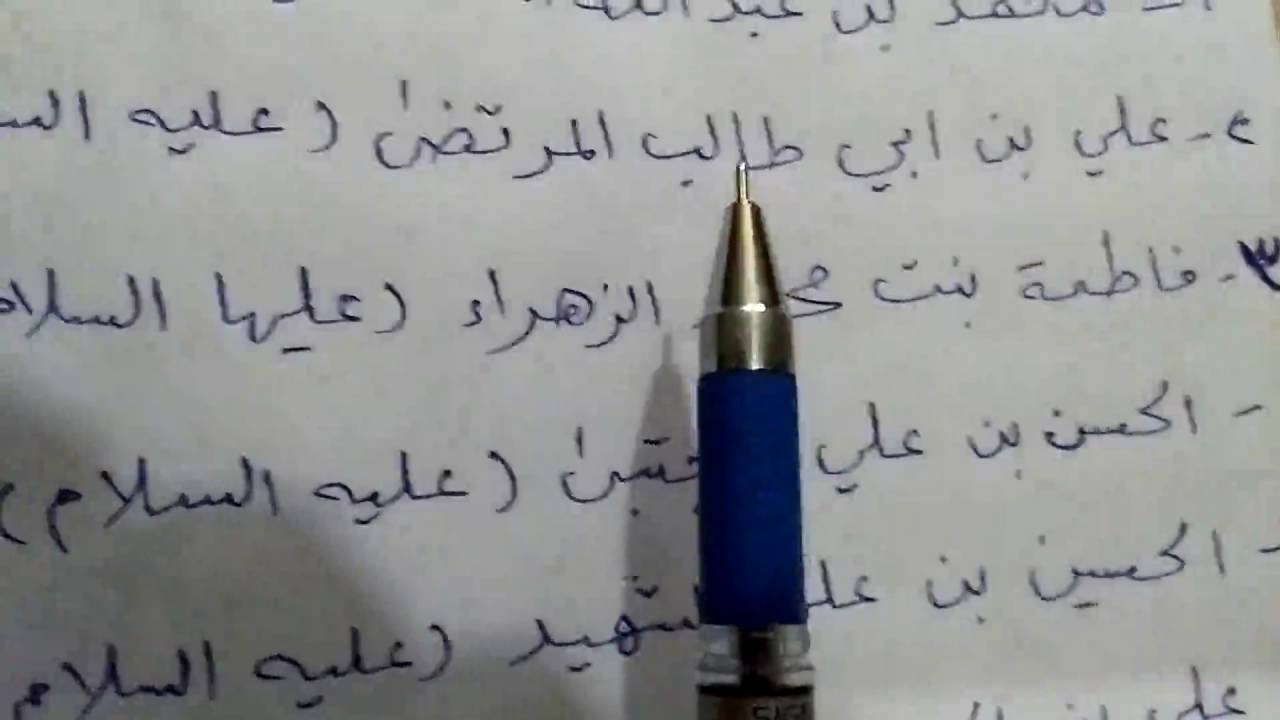 محمد بن عبدالله
٢- علي بن ابي طالب المرتضىٰ (عليه
٣- فاطمة بنت الزهراء (عليها السلام
- الحسن بن علي (عليه السلام)
- الحسين بن (عليه السلام
علي